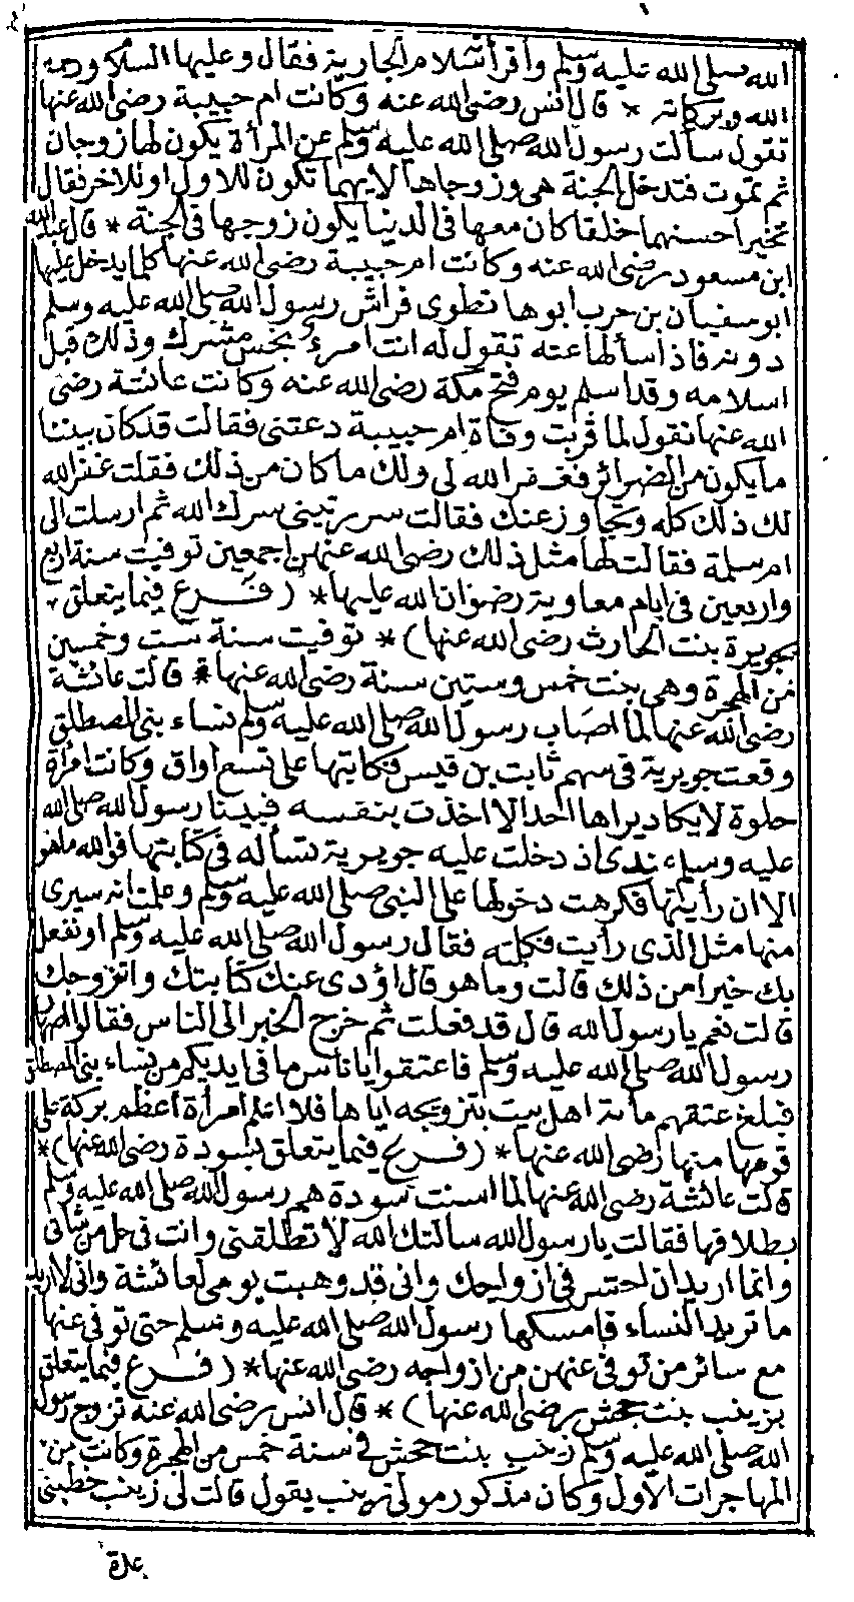 الله صلى الله عليه وسلم وأقرأ سلام الجارية فقال وعليها السلام ورحمة
الله وبركاته * قال انس رضى الله عنه وكانت ام حبيبة رضى الله عنها
تقول سألت رسول الله صلى الله عليه وسلم عن المرأة يكون لها زوجان
ثم تموت فتدخل الجنة هى وزوجاها لايهما تكون للاول او للاخر فقال
تخير احسنهما خلقا كان معها فى الدنيا يكون زوجها فى الجنة * قال عبد الله
ابن مسعود رضى الله عنه وكانت ام حبيبة رضى الله عنها كلما يدخل عليها
ابو سفيان بن حرب ابوها تطوى فراش رسول الله صلى الله عليه وسلم
دونه فاذا سألها عنه تقول له انت امرؤ نجس مشرك وذلك قبل
اسلامه وقد اسلم يوم فتح مكة رضى الله عنه وكانت عائشة رضى
الله عنها تقول لما قربت وفاة ام حبيبة دعتنى فقالت قد كان بيننا
ما يكون من الضرائر فغفر الله لى ولك ما كان من ذلك فقلت غفر الله
لك ذلك كله وتجاوز عنك فقالت سررتينى سرك الله ثم ارسلت الى
ام سلمة فقالت لها مثل ذلك رضى الله عنهن اجمعين توفيت سنة اربع
واربعين فى ايام معاوية رضوان الله عليها * (فرع فيما يتعلق
بجويرة بنت الحارث رضى الله عنها) * توفيت سنة ست وخمسين
من الهجرة وهى بنت خمس وستين سنة رضى الله عنها * قالت عائشة
رضى الله عنها لما اصاب رسول الله صلى الله عليه وسلم نساء بنى المصطلق
وقعت جويرية فى سهم ثابت بن قيس فكاتبها على تسع أواق وكانت امرأة
حلوة لا يكاد يراها احد الا اخذت بنفسه فبينا رسول الله صلى الله
عليه وسلم عندى اذ دخلت عليه جويرية تسأله فى كتابتها فوالله ما هو
الا ان رأيتها فكرهت دخولها على النبى صلى الله عليه وسلم وعلمت انه سيرى
منها مثل الذى رأيت فكلمته فقال رسول الله صلى الله عليه وسلم او نفعل
بك خيرا من ذلك قالت وما هو قال اؤدى عنك كتابتك واتزوجك
قالت نعم يا رسول الله قال قد فعلت ثم خرج الخبر الى الناس فقالوا اصهار
رسول الله صلى الله عليه وسلم فاعتقوا يا ناس ما فى ايديكم من نساء بنى المصطلق
فبلغ عتقهم مائة اهل بيت بتزويجه اياها فلا اعلم امرأة اعظم بركة على
قومها منها رضى الله عنها * (فرع فيما يتعلق بسودة رضى الله عنها) *
قالت عائشة رضى الله عنها لما اسنت سودة هم رسول الله صلى الله عليه وسلم
بطلاقها فقالت يا رسول الله سالتك الله لا تطلقنى وانت فى حل من شأنى
وانما اريد ان احشر فى ازواجك وانى قد وهبت يومى لعائشة وانى لا اريد
ما تريد النساء فامسكها رسول الله صلى الله عليه وسلم حتى توفى عنها
مع سائر من توفى عنهن من ازواجه رضى الله عنها * (فرع فيما يتعلق
بزينب بنت جحش رضى الله عنها) * قال انس رضى الله عنه تزوج رسول
الله صلى الله عليه وسلم زينب بنت جحش فى سنة خمس من الهجرة وكانت من
المهاجرات الأول وكان مذكور مولى زينب يقول قالت لى زينب خطبنى
عدة